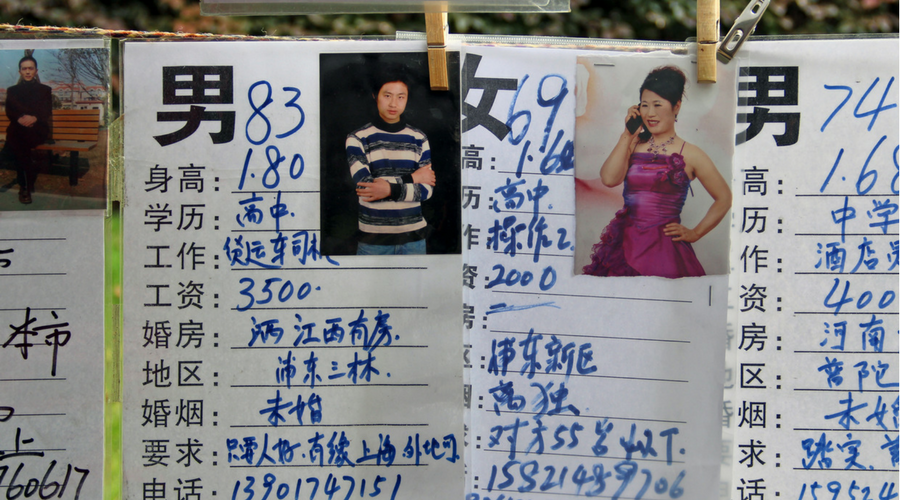 本市
上
760617
男 83
身高: 1.80
学历: 高中.
工作: 货运车司机
工资: 3500.
婚房: 江西有房.
地区: 浦东三林.
婚烟: 未婚
要求: 只要人好.有缘上海.外地可.
电话: 13901747151
女 69
高: 1.60
历: 高中.
作: 操作工
资: 2000
房:
区: 浦东新区
烟: 离 独.
求: 对方55岁以下.
男 74
高: 1.68
历: 中学
作: 酒店
资: 400
房: 河南
区: 普陀
烟: 未婚
求: 踏实.
话: 159524